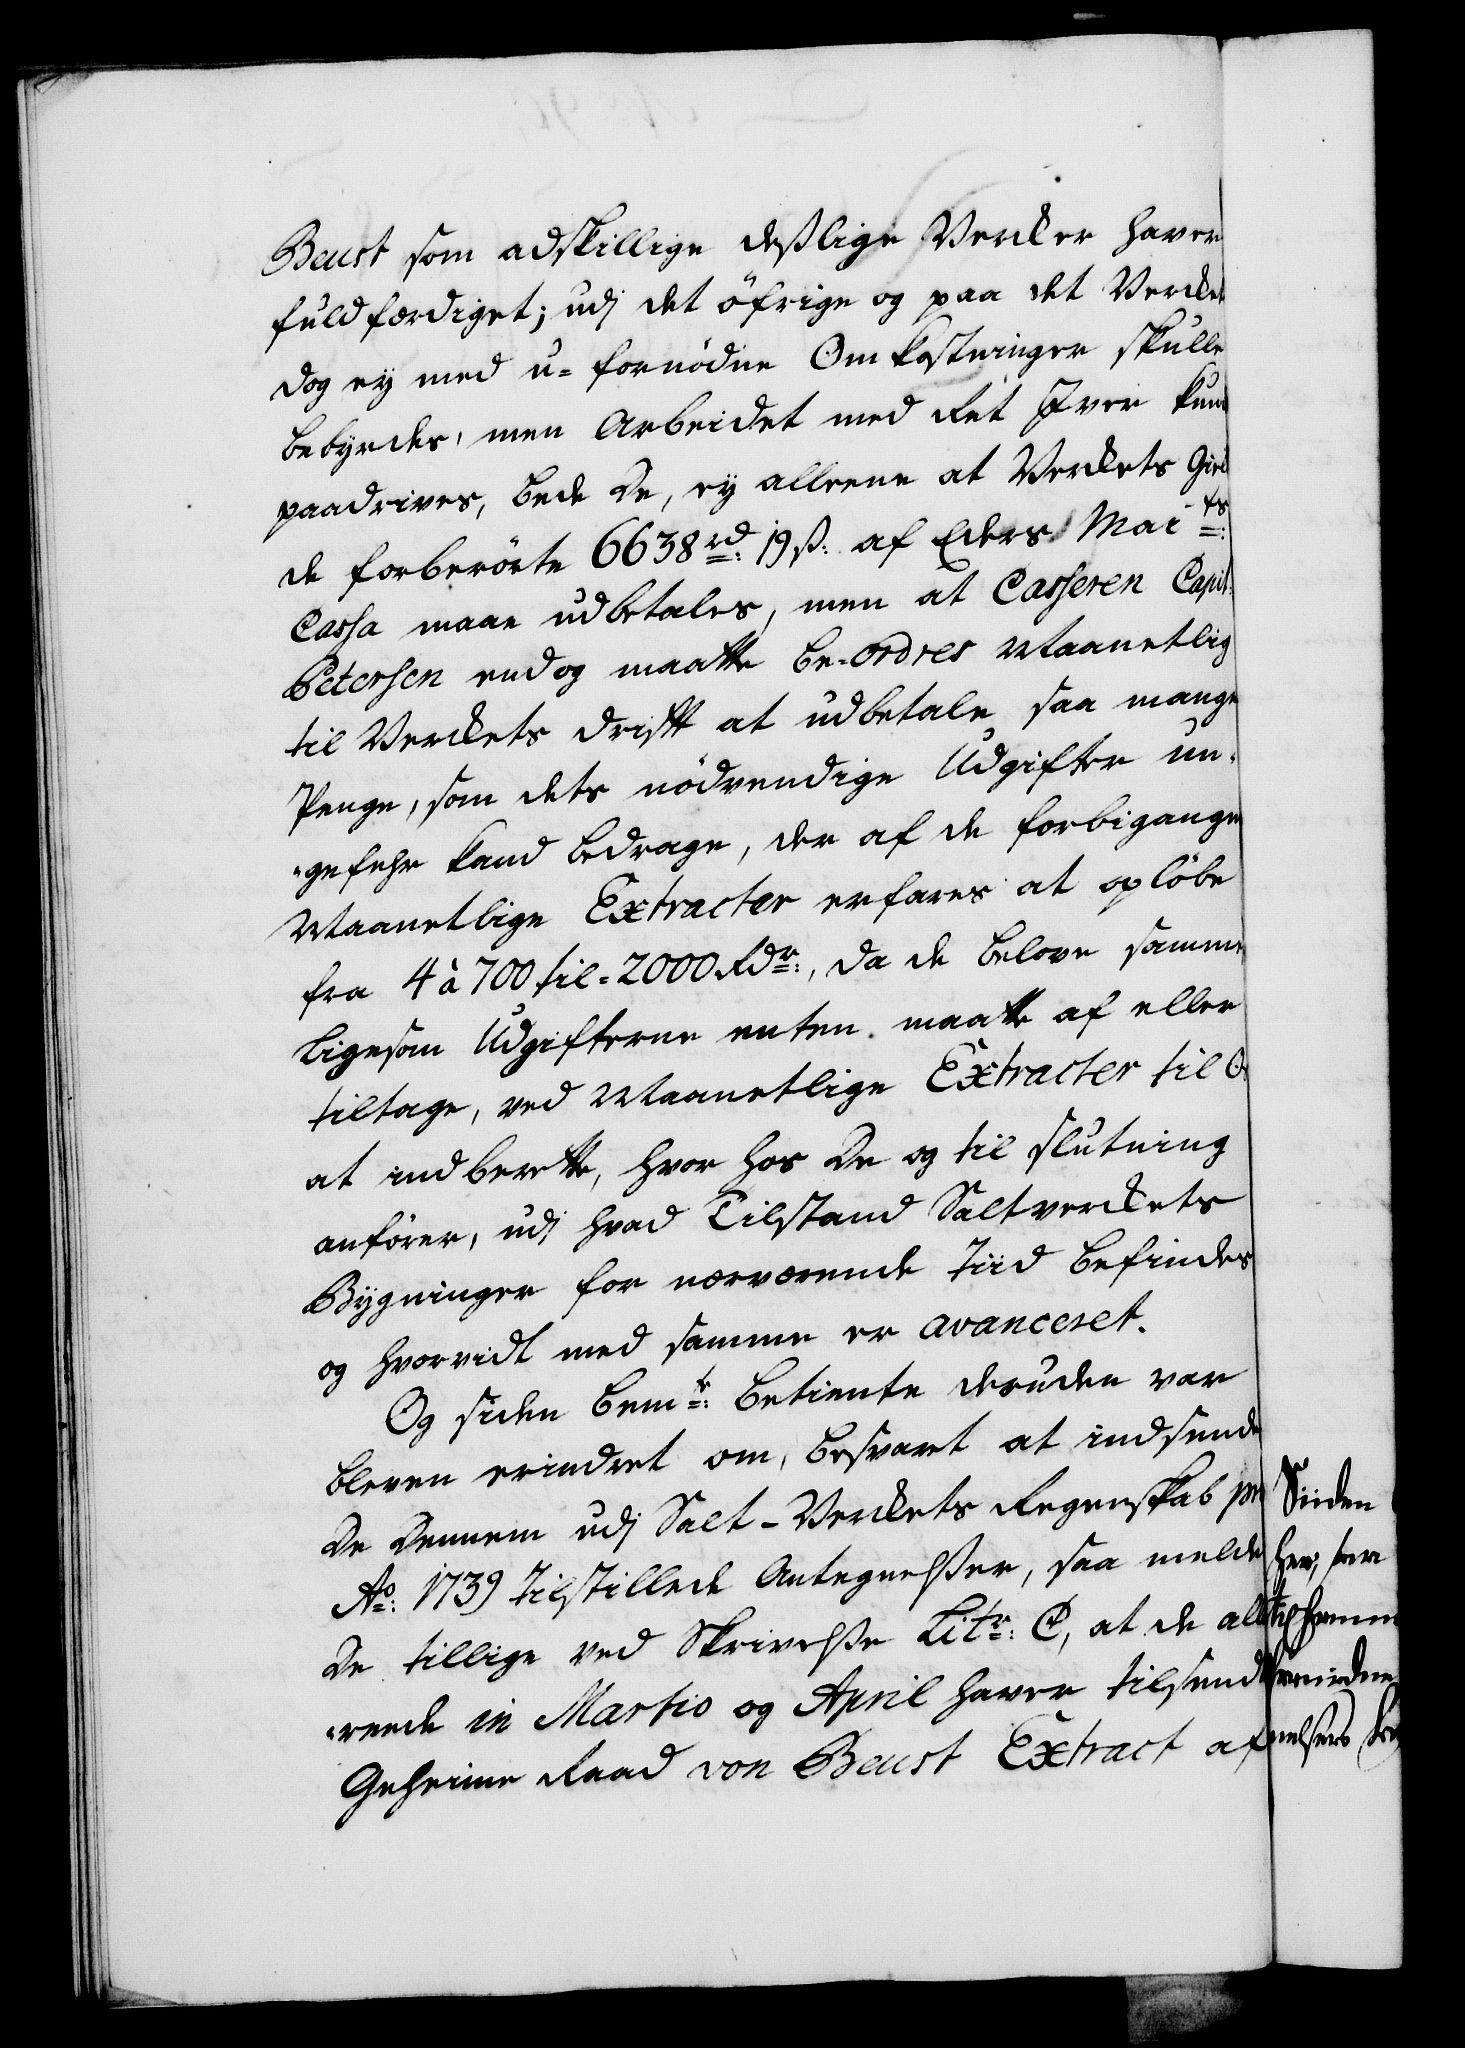 Beust som adskillige deslige Vercker haver
fuldfærdiget; udj det öfrige og paa det Vercket
dog ey med u-fornödne Omkostninger skulle
bebyrdes, men Arbeidet med Ret Iver kun
paadrives, bede De, ey alleene at Verckets Gield
de forberörte 6638 rd: 19 ß: af Eders Mai ts:
Cassa maae udbetales, men at Casseren Capit:
Petersen endog maatte be-ordres Maanetlig
til Verckets drift at udbetale saa mange
Penge, som dets nödvendige Udgifter un-
-gefehr kand bedrage, der af de forbigangne
Maanetlige Extracter erfares at oplöbe
fra 4 à 700 til 2000 Rdr:, da de belove samme
ligesom Udgifterne enten maatte af eller
tiltage, ved Maanetlige Extracter til
at indberette, hvor hos De og til slutning
anförer, udj hvad Tilstand Saltverckets
Bygninger for nærværende Tiid befindes
og hvorvidt med samme er avanceret.
Og siden bemte: betiente desuden var
bleven erindret om, besvaret at indsende
De Dennem udj Salt-Verckets Regenskab pro
Ao: 1739 tilstillede Antegnelßer, saa melde
De tillige ved Skrivelße Litr: C, at de alle-
-rede in Martio og April haver tilsendt
Geheime Raad von Beust Extract af
Siiden